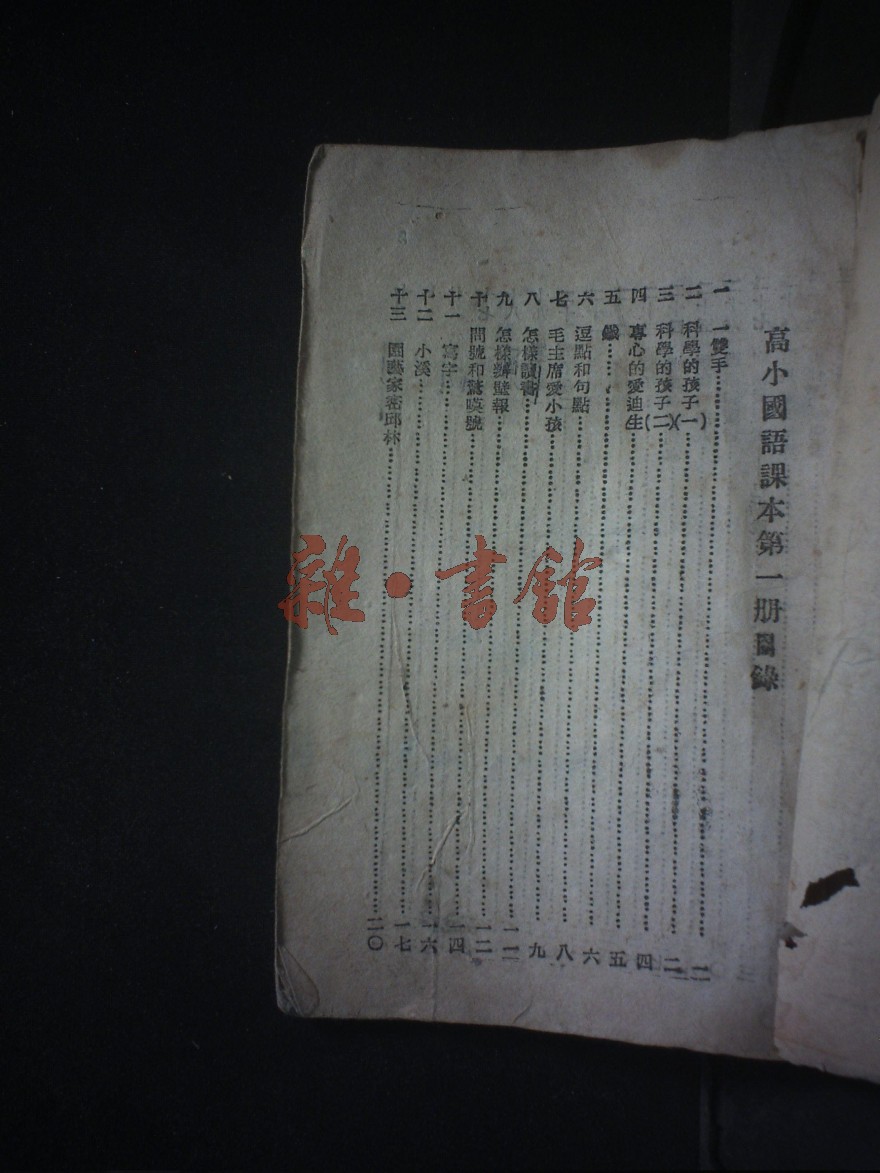 高小國語課本第一册目錄
一 一雙手……
二 科學的孩子(一)……二
三 科學的孩子(二)……
四 專心的愛迪生……四
五 鐵……五
六 逗點和句點……六
七 毛主席愛小孩……八
八 怎樣讀書……九
九 怎樣辦壁報……一一
十 問號和驚嘆號……一二
十一 寫字……一四
十二 小溪……一六
十三 園藝家密邱林……二〇
雜·書館